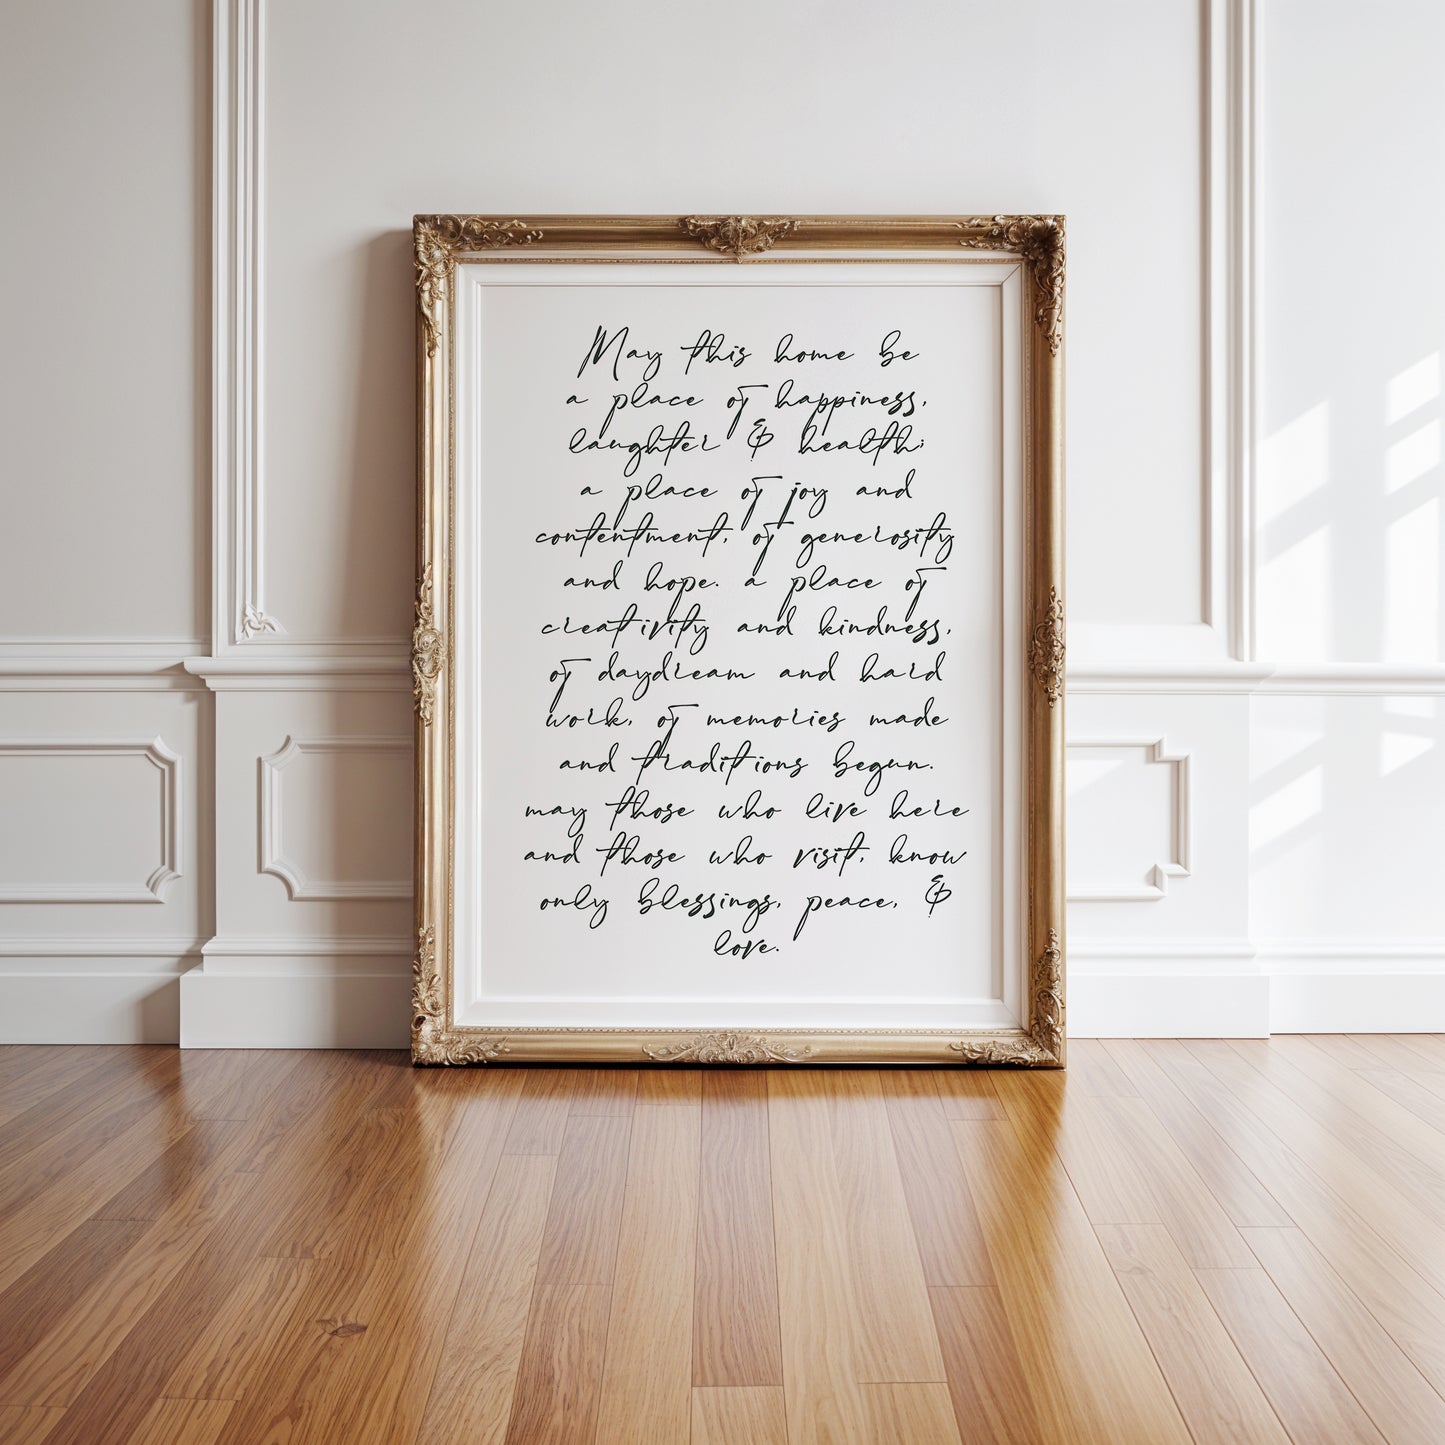 May this home be
a place of happiness,
laughter & health;
a place of joy and
contentment, of generosity
and hope. a place of
creativity and kindness,
of daydream and hard
work, of memories made
and traditions begun.
may those who live here
and those who visit, know
only blessings, peace, &
love.